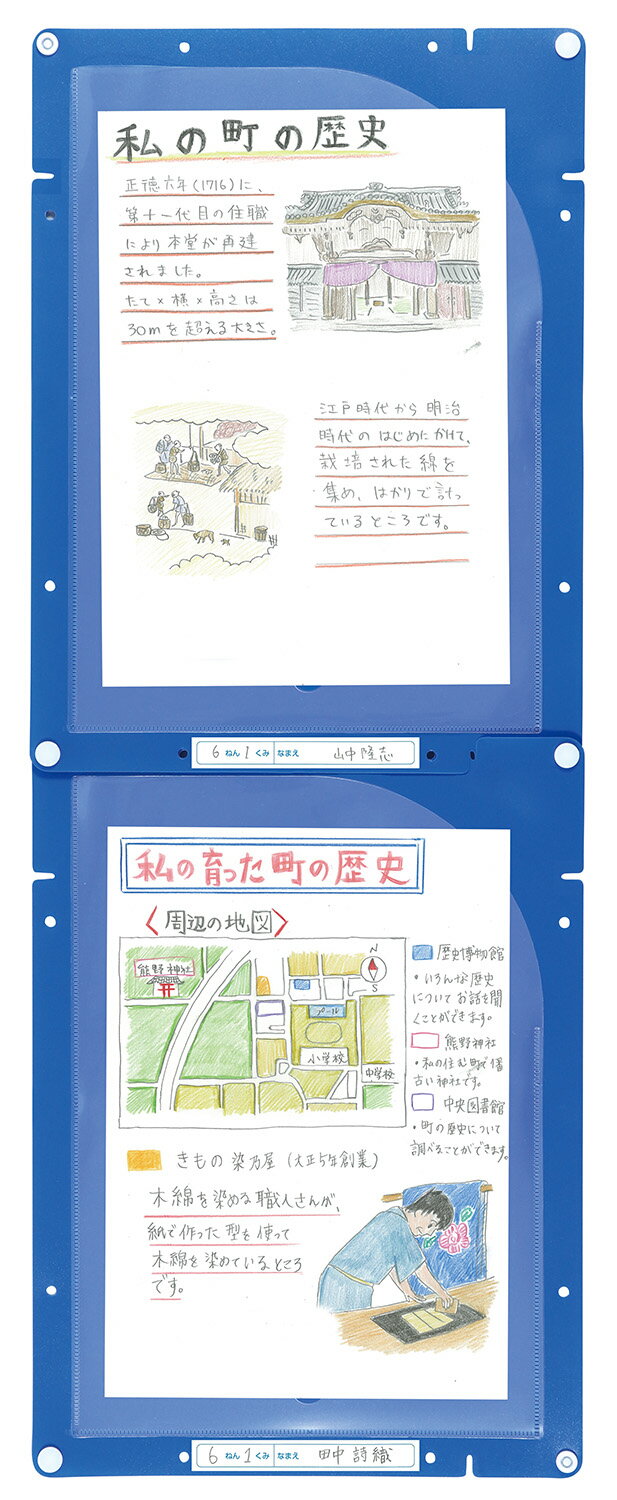 私の町の歴史
正徳六年(1716)に、
第十一代目の住職
により本堂が再建
されました。
たて×横×高さは
30mを超える大きさ。
江戸時代から明治
時代のはじめにかけて、
栽培された綿を
集め、はかりで計っ
ているところです。
6ねん1くみ なまえ 山中隆志
私の育った町の歴史
〈周辺の地図〉
熊野神社
N
S
プール
小学校
中学校
歴史博物館
・いろんな歴史
についてお話を聞
くことができます。
熊野神社
・私の住む町で1番
古い神社です。
中央図書館
・町の歴史について
調べることができます。
きもの 染乃屋 (大正5年創業)
木綿を染める職人さんが、
紙で作った型を使って
木綿を染めているところ
です。
6ねん1くみ なまえ 田中詩織